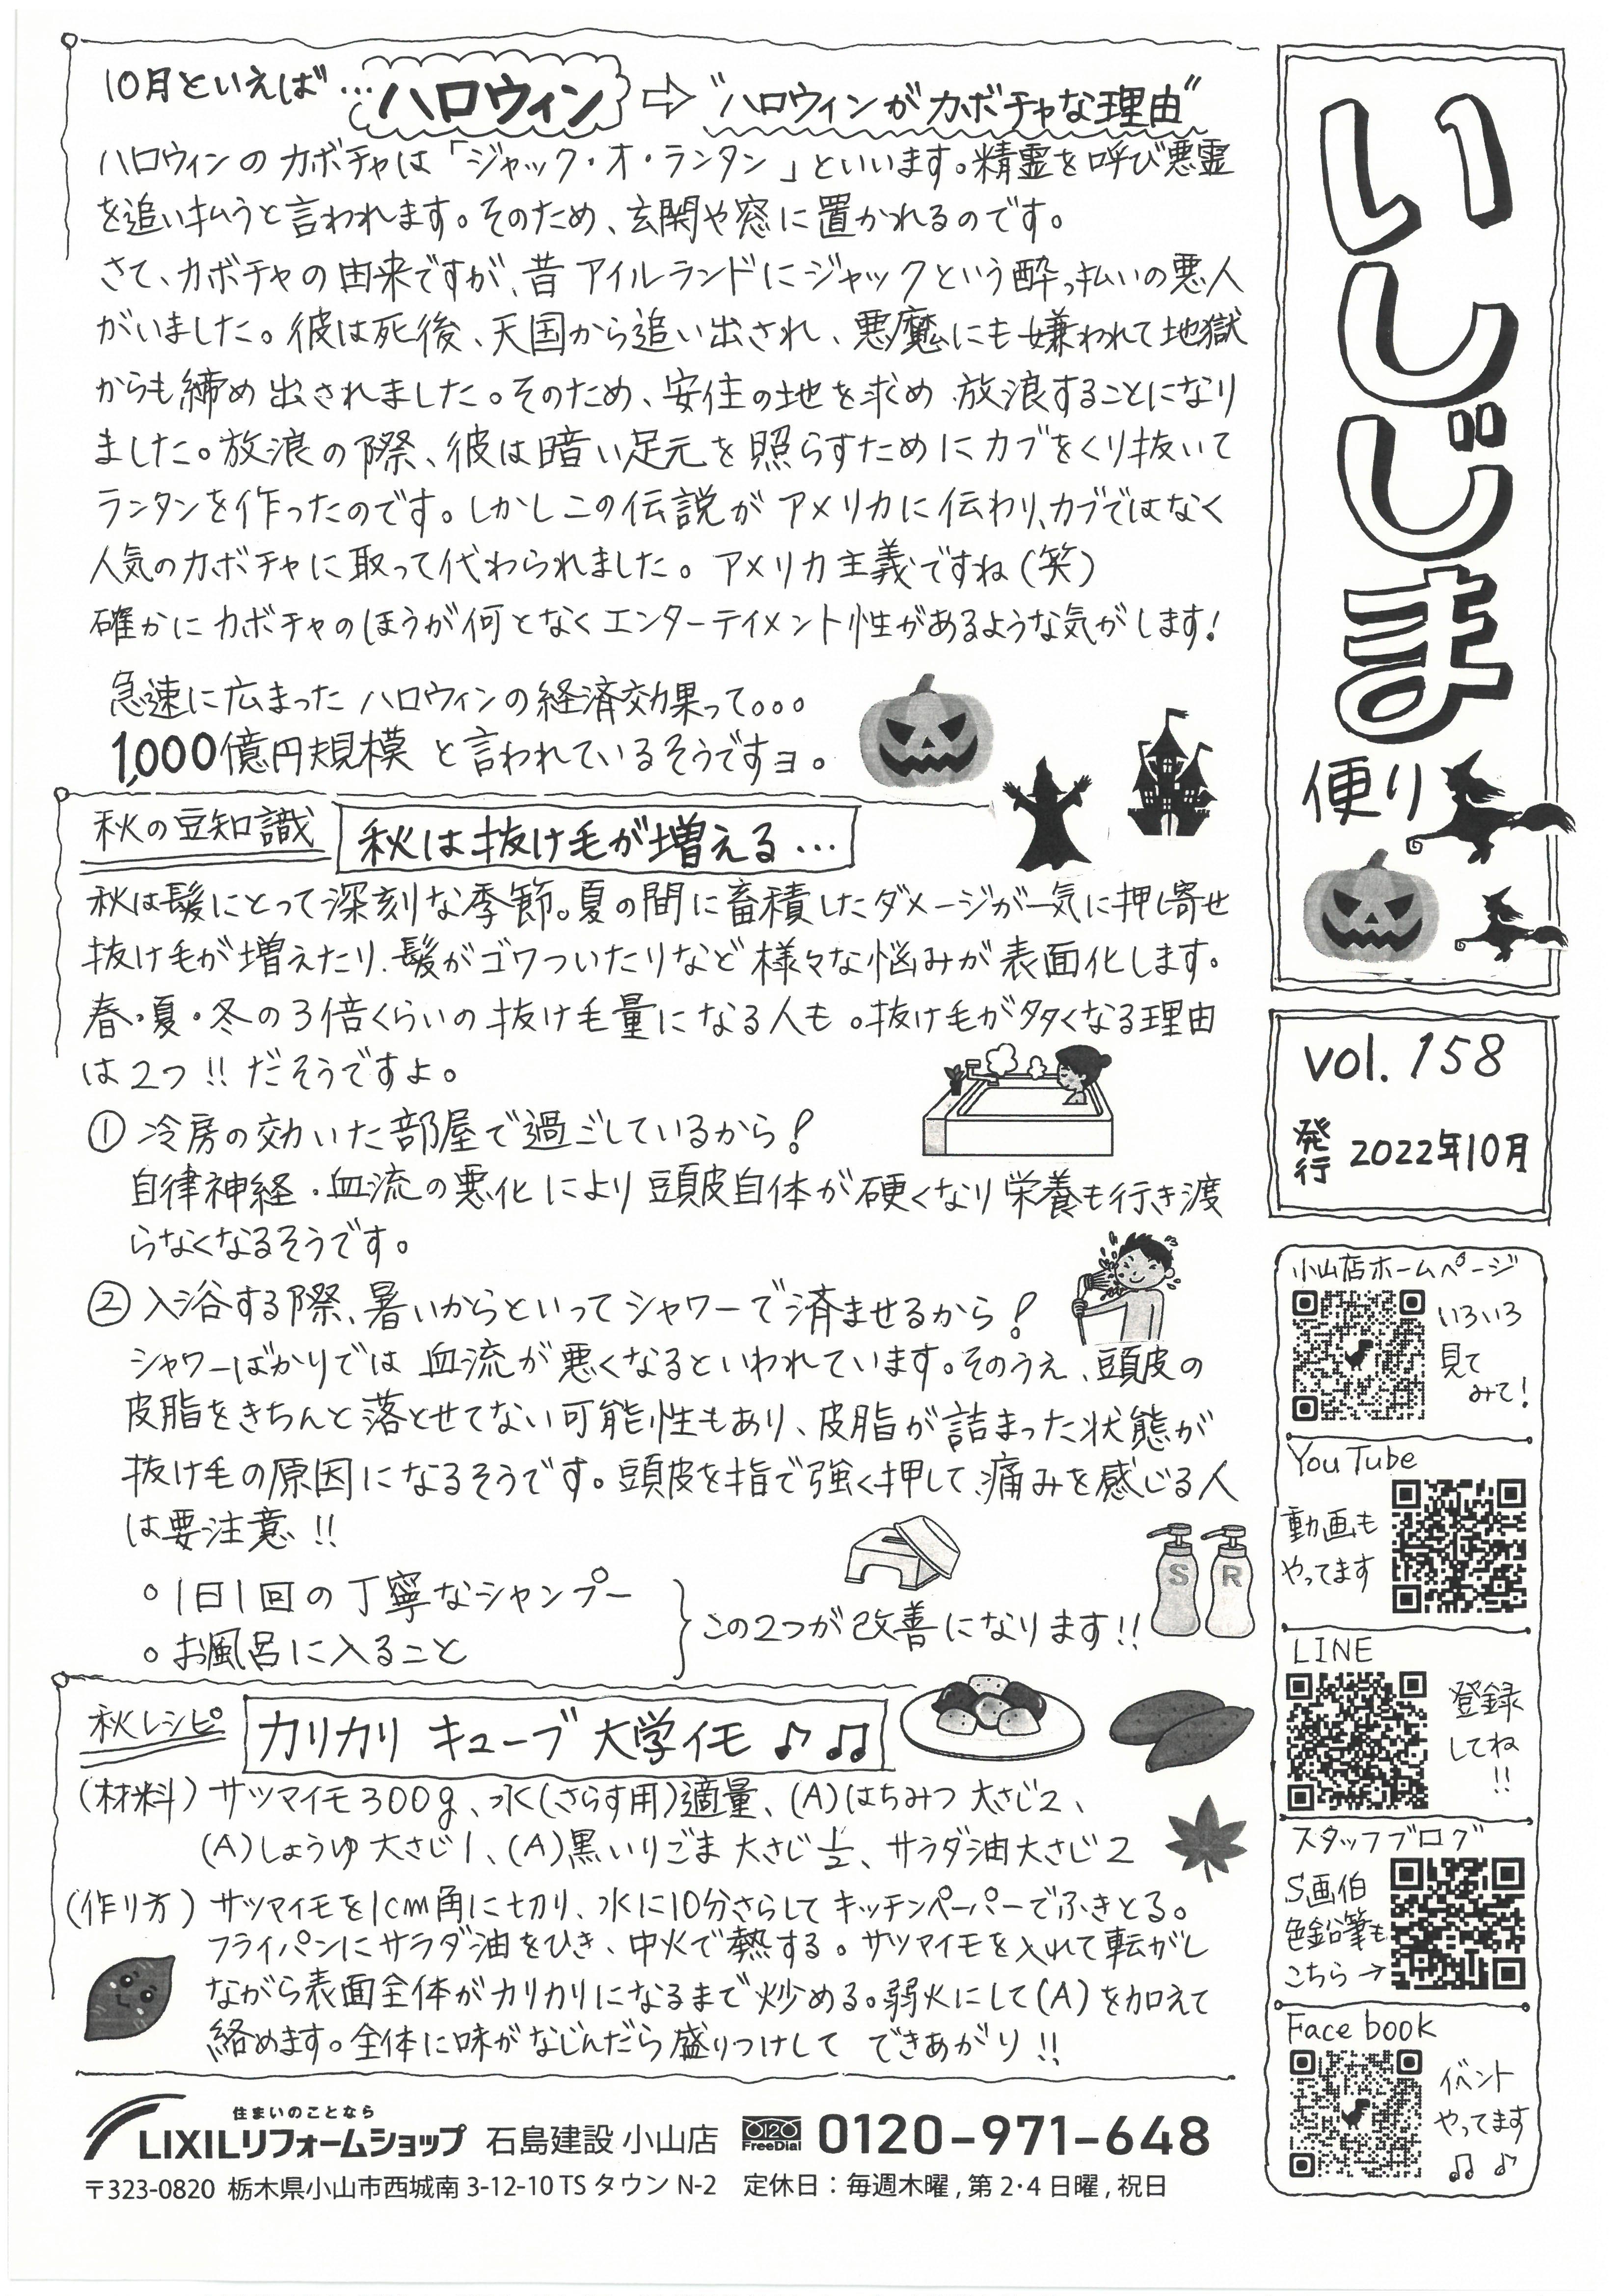 10月といえば…ハロウィン⇨"ハロウィンがカボチャな理由"
ハロウィンのカボチャは「ジャック・オ・ランタン」といいます。精霊を呼び悪霊
を追い払うと言われます。そのため、玄関や窓に置かれるのです。
さて、カボチャの由来ですが、昔アイルランドにジャックという酔っ払いの悪人
がいました。彼は死後、天国から追い出され、悪魔にも嫌われて地獄
からも締め出されました。そのため、安住の地を求め放浪することになり
ました。放浪の際、彼は暗い足元を照らすためにカブをくり抜いて
ランタンを作ったのです。しかしこの伝説がアメリカに伝わり、カブではなく
人気のカボチャに取って代わられました。アメリカ主義ですね(笑)
確かにカボチャのほうが何となくエンターテイメント性があるような気がします!
急速に広まったハロウィンの経済効果って。。。
1,000億円規模と言われているそうですョ。
秋の豆知識
秋は抜け毛が増える…
秋は髪にとって深刻な季節。夏の間に蓄積したダメージが一気に押し寄せ
抜け毛が増えたり、髪がゴワついたりなど様々な悩みが表面化します。
春・夏・冬の3倍くらいの抜け毛量になる人も。抜け毛が多くなる理由
は2つ!!だそうですよ。
① 冷房の効いた部屋で過ごしているから!
自律神経・血流の悪化により頭皮自体が硬くなり栄養も行き渡
らなくなるそうです。
② 入浴する際、暑いからといってシャワーで済ませるから!
シャワーばかりでは血流が悪くなるといわれています。そのうえ、頭皮の
皮脂をきちんと落とせてない可能性もあり、皮脂が詰まった状態が
抜け毛の原因になるそうです。頭皮を指で強く押して、痛みを感じる人
は要注意!!
○1日1回の丁寧なシャンプー
○お風呂に入ること
この2つが改善になります!!
S R
秋レシピ
カリカリ キューブ 大学イモ♪♫
(材料) サツマイモ300g、水(さらす用)適量、(A)はちみつ 大さじ2、
(A)しょうゆ 大さじ1、(A)黒いりごま 大さじ1/2、サラダ油大さじ2
(作り方) サツマイモを1cm角に切り、水に10分さらしてキッチンペーパーでふきとる。
フライパンにサラダ油をひき、中火で熱する。サツマイモを入れて転がし
ながら表面全体がカリカリになるまで炒める。弱火にして(A)を加えて
絡めます。全体に味がなじんだら盛りつけして できあがり!!
住まいのことなら
LIXILリフォームショップ 石島建設 小山店 0120 FreeDial 0120-971-648
〒323-0820 栃木県小山市西城南 3-12-10 TS タウン N-2 定休日：毎週木曜,第2・4日曜,祝日
いしじま
便り
vol. 158
発行 2022年10月
小山店ホームページ
いろいろ
見て
みて!
YouTube
動画も
やってます
LINE
登録
してね
!!
スタッフブログ
S画伯
色鉛筆も
こちら→
Face book
イベント
やってます
♫ ♪